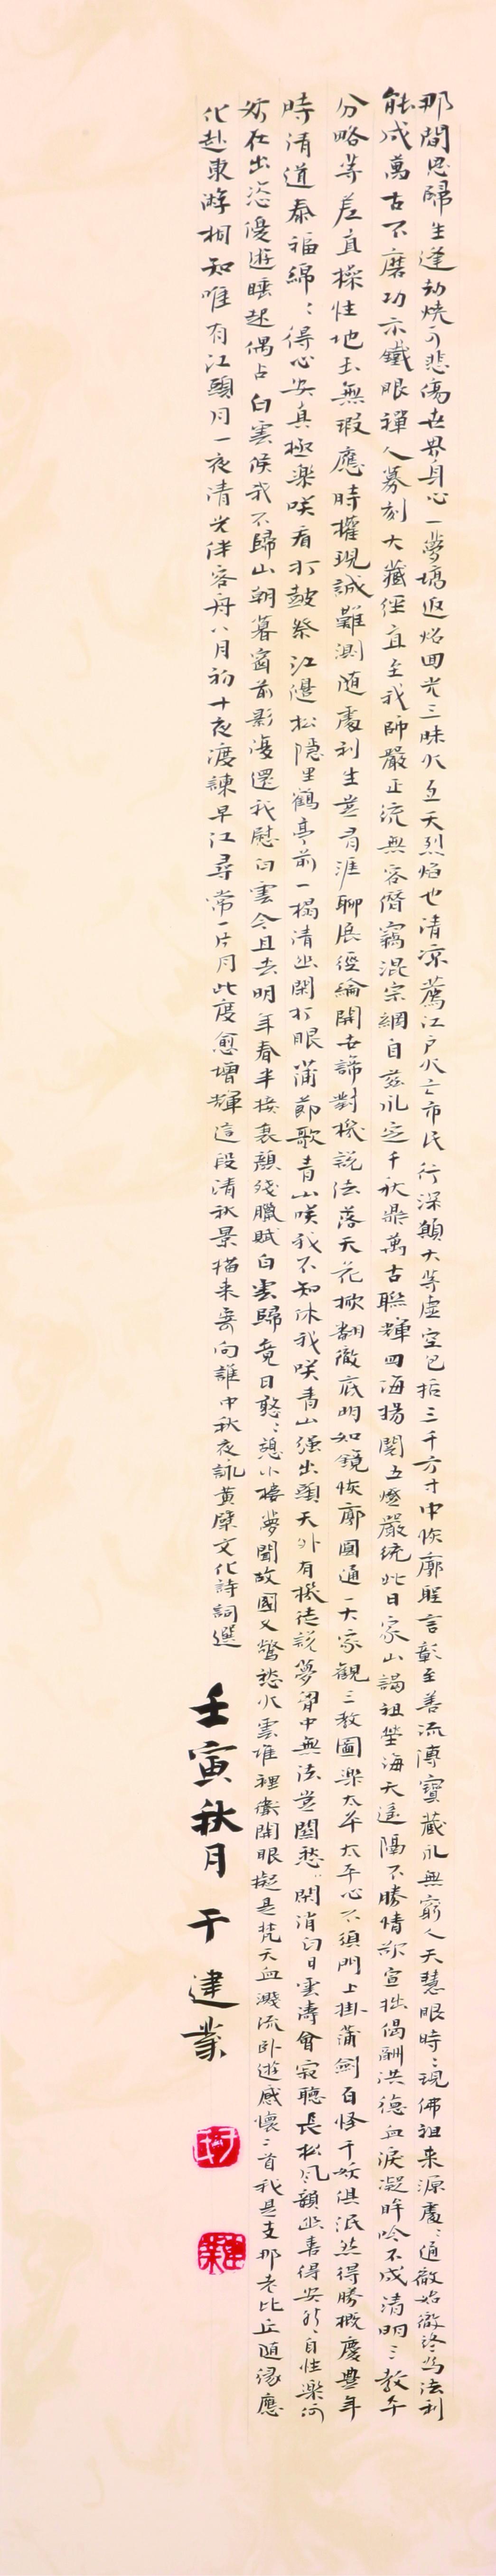 那間思歸生逢劫燒可悲傷世界身心一夢場返炤回光三昧火亙天烈焰也清涼薦江戶火亡市民行深願大等虛空包括三千方寸中恢廓聖言彰至善流傳寶藏永無窮人天慧眼時〻現佛祖來源處〻通徹始徹終為法利
能成萬古不磨功示鐵眼禪人募刻大藏經直至我師嚴正流無容僭竊混宗綱自茲永定千秋鼎萬古聯輝四海揚閱五燈嚴統此日家山謁祖塋海天遙隔不勝情敬宣拙偈酬洪德血淚凝眸吟不成清明三教本
分略等差直操性地玉無瑕應時權現誠難測隨處利生豈有涯聊展經綸開世諦對機說法落天花掀翻徹底明如鏡恢廓圓通一大家觀三教圖樂太平太平心不須門上掛蒲劍百怪千妖俱泯然得勝概慶豐年
時清道泰福綿〻得心安真極樂咲看打鼓祭江邊松隱里鶴亭前一榻清幽閑打眠蒲節歌青山咲我不知休我咲青山強出頭天外有機徒說夢胷中無法豈關愁〻閑消白日雲濤會寂聽長松風韻幽喜得安然自性樂何
妨在出恣優遊睡起偶占白雲候我不歸山朝暮窗前影漫還我慰白雲今且去明年春半接衰顏殘臘賦白雲歸竟日憨〻憩小樓夢聞故國又驚愁火雲堆裡衝開眼擬是梵天血濺流臥遊感懷二首我是支那老比丘隨緣應
化赴東游相知唯有江頭月一夜清光伴客舟八月初十夜渡諫早江尋常一片月此度愈增輝這段清秋景描來寄向誰中秋夜詠黃檗文化詩詞選
壬寅秋月 于建業